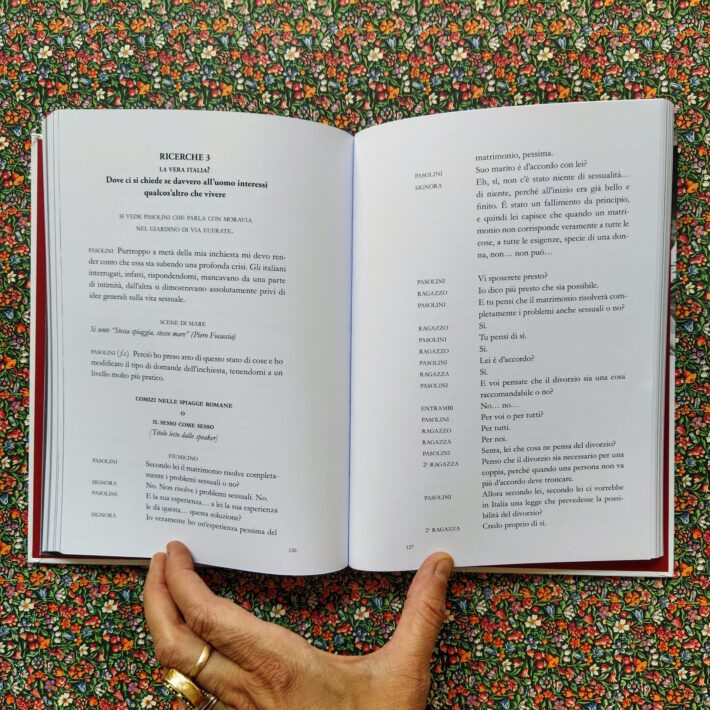 RICERCHE 3
LA VERA ITALIA?
Dove ci si chiede se davvero all'uomo interessi
qualcos'altro che vivere
SI VEDE PASOLINI CHE PARLA CON MORAVIA
NEL GIARDINO DI VIA EUFRATE.
PASOLINI Purtroppo a metà della mia inchiesta mi devo ren-
der conto che essa sta subendo una profonda crisi. Gli italiani
interrogati, infatti, rispondendomi, mancavano da una parte
di intimità, dall'altra si dimostravano assolutamente privi di
idee generali sulla vita sessuale.
SCENE DI MARE
Si sente "Stessa spiaggia, stesso mare" (Piero Focaccia)
PASOLINI (f.c.) Perciò ho preso atto di questo stato di cose e ho
modificato il tipo di domande dell'inchiesta, tenendomi a un
livello molto più pratico.
COMIZI NELLE SPIAGGE ROMANE
O
IL SESSO COME SESSO
[Titolo letto dallo speaker]
FIUMICINO
PASOLINI Secondo lei il matrimonio risolve completa-
mente i problemi sessuali o no?
SIGNORA No. Non risolve i problemi sessuali. No.
PASOLINI E la sua esperienza... a lei la sua esperienza
le dà questa... questa soluzione?
SIGNORA Io veramente ho un'esperienza pessima del
126
matrimonio, pessima.
PASOLINI Suo marito è d'accordo con lei?
SIGNORA Eh, sì, non c'è stato niente di sessualità...
di niente, perché all'inizio era già bello e
finito. È stato un fallimento da principio,
e quindi lei capisce che quando un matri-
monio non corrisponde veramente a tutte le
cose, a tutte le esigenze, specie di una don-
na, non... non può...
PASOLINI Vi sposerete presto?
RAGAZZO Io dico più presto che sia possibile.
PASOLINI E tu pensi che il matrimonio risolverà com-
pletamente i problemi anche sessuali o no?
RAGAZZO Sì.
PASOLINI Tu pensi di sì.
RAGAZZO Sì.
PASOLINI Lei è d'accordo?
RAGAZZA Sì.
PASOLINI E voi pensate che il divorzio sia una cosa
raccomandabile o no?
ENTRAMBI No... no...
PASOLINI Per voi o per tutti?
RAGAZZO Per tutti.
RAGAZZA Per noi.
PASOLINI Senta, lei che cosa ne pensa del divorzio?
2ª RAGAZZA Penso che il divorzio sia necessario per una
coppia, perché quando una persona non va
più d'accordo deve troncare.
PASOLINI Allora secondo lei, secondo lei ci vorrebbe
in Italia una legge che prevedesse la possi-
bilità del divorzio?
2ª RAGAZZA Credo proprio di sì.
127